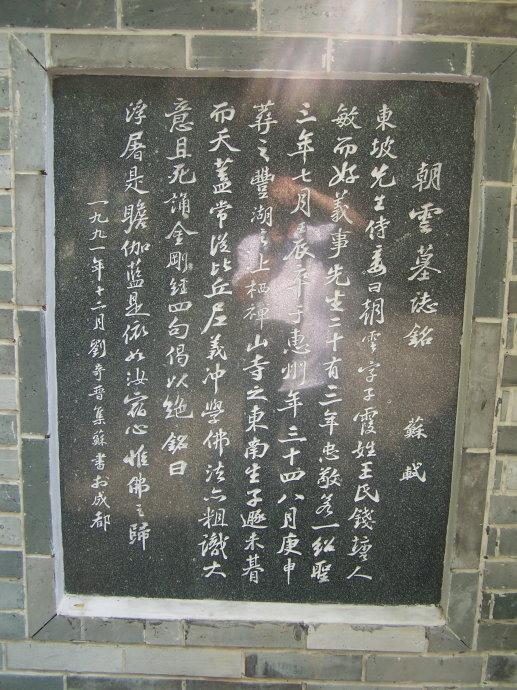 朝雲墓誌銘 蘇軾
東坡先生侍妾曰朝雲字子霞姓王氏錢塘人
敏而好義事先生二十有三年忠敬若一紹聖
三年七月壬辰卒于惠州年三十四八月庚申
葬之豐湖之上栖禪山寺之東南生子遯未朞
而夭蓋常從比丘尼義沖學佛法亦粗識大
意且死誦金剛經四句偈以絕銘曰
浮屠是瞻伽藍是依如汝宿心惟佛之歸
一九九一年十二月劉奇晋集蘇書於成都